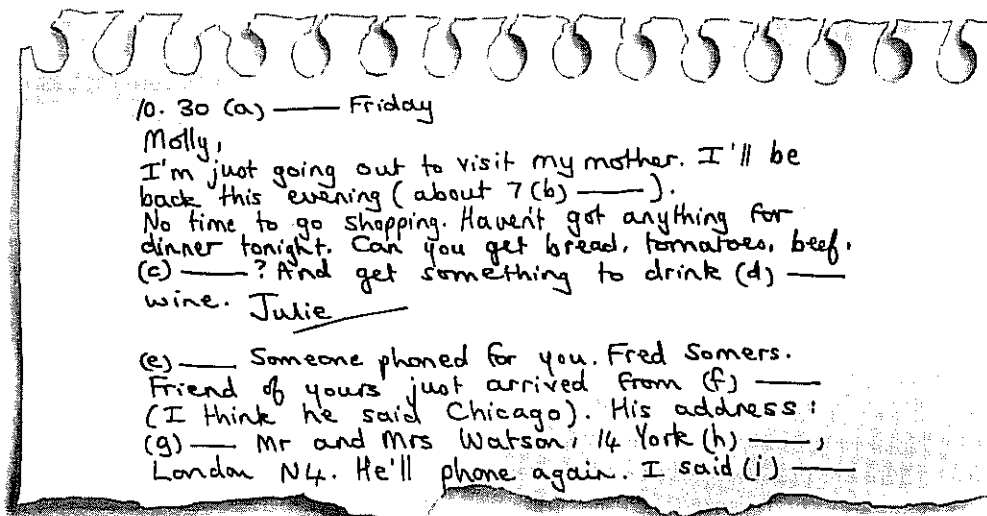 10.30 (a) —— Friday
Molly,
I'm just going out to visit my mother. I'll be
back this evening (about 7 (b) ——).
No time to go shopping. Haven't got anything for
dinner tonight. Can you get bread, tomatoes, beef,
(c) ——? And get something to drink (d) ——
wine. Julie
(e) —— Someone phoned for you. Fred Somers.
Friend of yours just arrived from (f) ——
(I think he said Chicago). His address:
(g) —— Mr and Mrs Watson, 14 York (h) ——,
London N4. He'll phone again. I said (i) ——